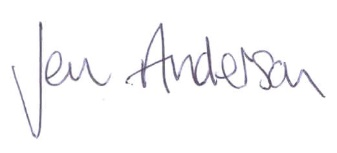 Jen Anderson